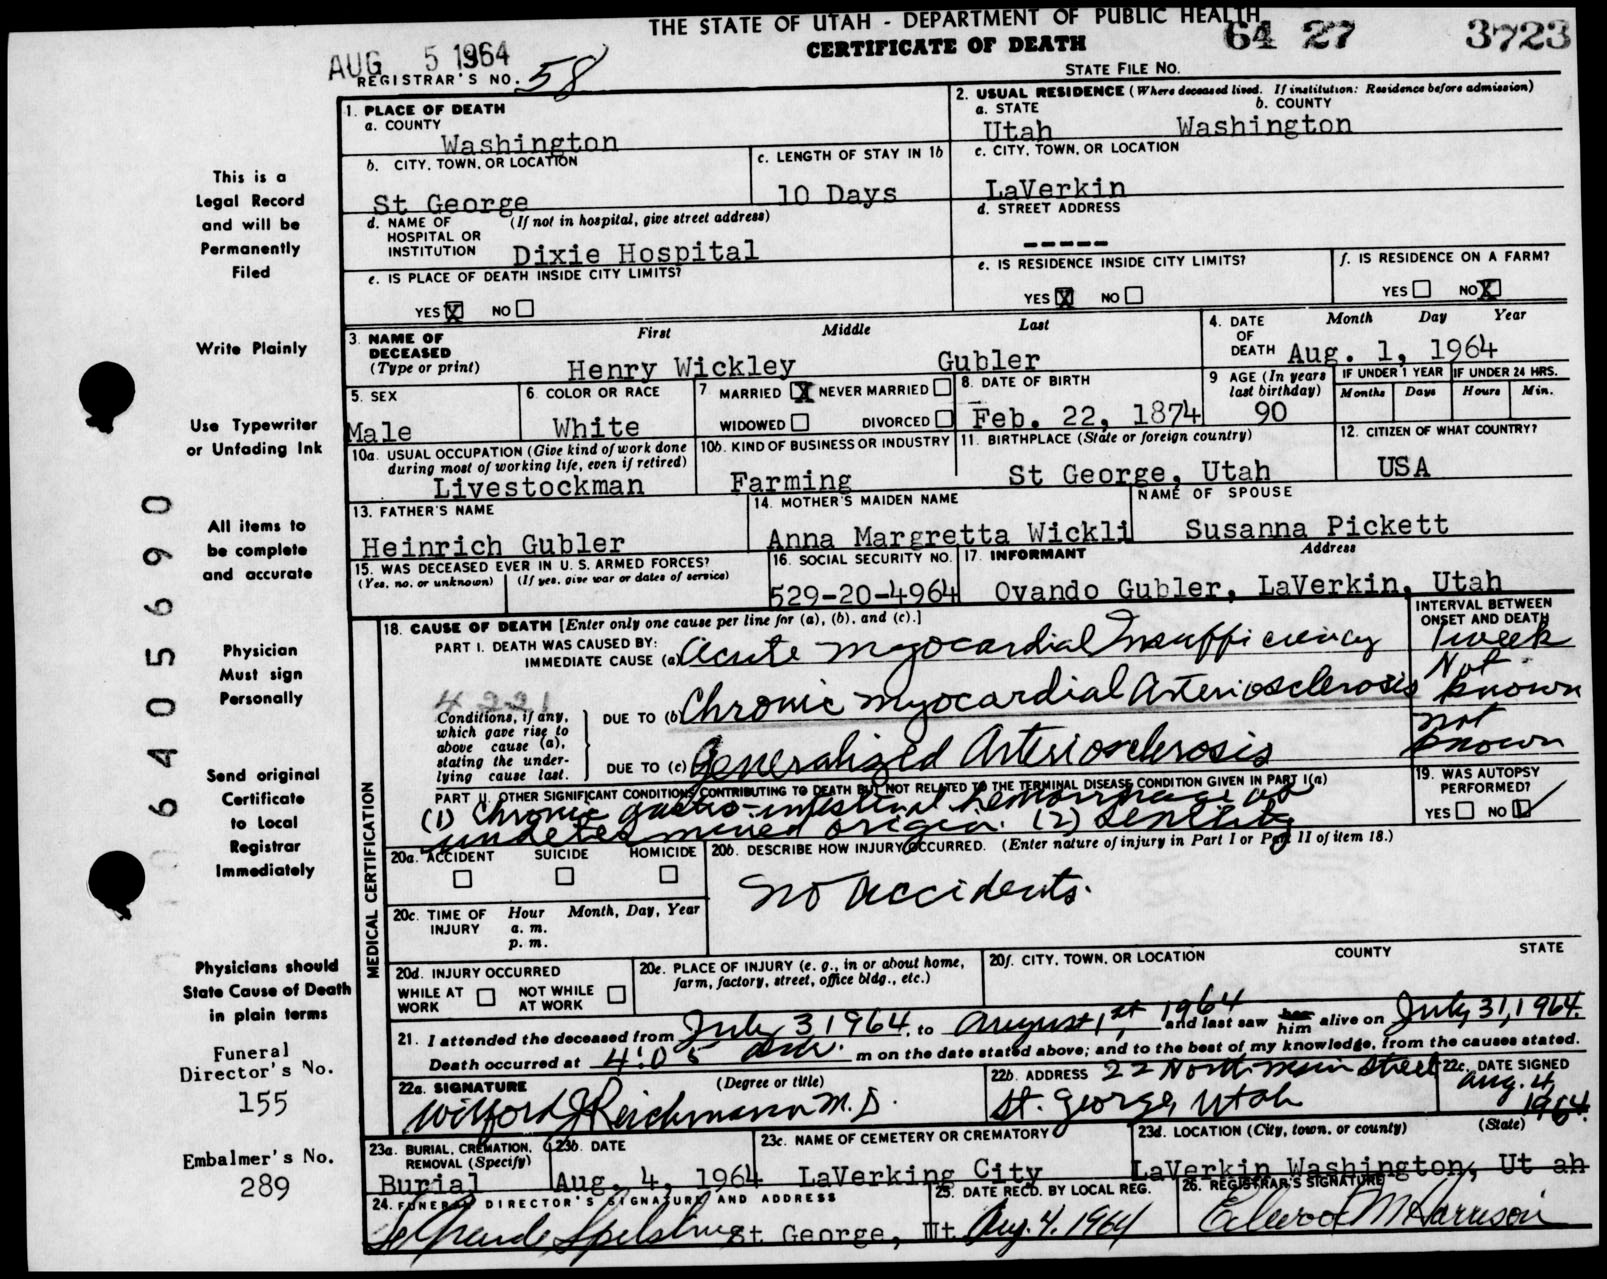 THE STATE OF UTAH - DEPARTMENT OF PUBLIC HEALTH
CERTIFICATE OF DEATH
64 27 3723
AUG 5 1964
REGISTRAR'S NO. 58
STATE FILE NO.
1. PLACE OF DEATH
a. COUNTY
Washington
2. USUAL RESIDENCE (Where deceased lived. If institution: Residence before admission)
a. STATE b. COUNTY
Utah Washington
b. CITY, TOWN, OR LOCATION
St George
c. LENGTH OF STAY IN 1b
10 Days
c. CITY, TOWN, OR LOCATION
LaVerkin
d. NAME OF HOSPITAL OR INSTITUTION (If not in hospital, give street address)
Dixie Hospital
d. STREET ADDRESS
-----
e. IS PLACE OF DEATH INSIDE CITY LIMITS?
YES X NO
e. IS RESIDENCE INSIDE CITY LIMITS?
YES X NO
f. IS RESIDENCE ON A FARM?
YES NO X
3. NAME OF DECEASED (Type or print)
First Middle Last
Henry Wickley Gubler
4. DATE OF DEATH
Month Day Year
Aug. 1, 1964
5. SEX
Male
6. COLOR OR RACE
White
7. MARRIED X NEVER MARRIED
WIDOWED DIVORCED
8. DATE OF BIRTH
Feb. 22, 1874
9 AGE (In years last birthday)
90
IF UNDER 1 YEAR IF UNDER 24 HRS.
Months Days Hours Min.
10a. USUAL OCCUPATION (Give kind of work done during most of working life, even if retired)
Livestockman
10b. KIND OF BUSINESS OR INDUSTRY
Farming
11. BIRTHPLACE (State or foreign country)
St George, Utah
12. CITIZEN OF WHAT COUNTRY?
USA
13. FATHER'S NAME
Heinrich Gubler
14. MOTHER'S MAIDEN NAME
Anna Margretta Wickli
NAME OF SPOUSE
Susanna Pickett
15. WAS DECEASED EVER IN U. S. ARMED FORCES?
(Yes, no, or unknown) (If yes, give war or dates of service)
16. SOCIAL SECURITY NO.
529-20-4964
17. INFORMANT Address
Ovando Gubler, LaVerkin, Utah
18. CAUSE OF DEATH [Enter only one cause per line for (a), (b), and (c).]
INTERVAL BETWEEN ONSET AND DEATH
PART I. DEATH WAS CAUSED BY:
IMMEDIATE CAUSE (a) Acute myocardial Insufficiency 1 week
4221
Conditions, if any, which gave rise to above cause (a), stating the underlying cause last.
DUE TO (b) Chronic myocardial Arteriosclerosis Not known
DUE TO (c) Generalized Arteriosclerosis not known
PART II. OTHER SIGNIFICANT CONDITIONS CONTRIBUTING TO DEATH BUT NOT RELATED TO THE TERMINAL DISEASE CONDITION GIVEN IN PART I(a)
(1) Chronic gastro-intestinal hemorrhage of
undetermined origin. (2) Senility
19. WAS AUTOPSY PERFORMED?
YES NO
MEDICAL CERTIFICATION
20a. ACCIDENT SUICIDE HOMICIDE
20b. DESCRIBE HOW INJURY OCCURRED. (Enter nature of injury in Part I or Part II of item 18.)
No Accidents.
20c. TIME OF INJURY Hour Month, Day, Year
a. m.
p. m.
20d. INJURY OCCURRED
WHILE AT WORK NOT WHILE AT WORK
20e. PLACE OF INJURY (e. g., in or about home, farm, factory, street, office bldg., etc.)
20f. CITY, TOWN, OR LOCATION COUNTY STATE
21. I attended the deceased from July 3 1964, to August 1st, 1964 and last saw her him alive on July 31, 1964.
Death occurred at 4:05 m on the date stated above; and to the best of my knowledge, from the causes stated.
22a. SIGNATURE (Degree or title)
Wilford J Reichmann M.D.
22b. ADDRESS 22 North main street
St. George, Utah
22c. DATE SIGNED
Aug. 4, 1964.
23a. BURIAL, CREMATION, REMOVAL (Specify)
Burial
23b. DATE
Aug. 4, 1964
23c. NAME OF CEMETERY OR CREMATORY
LaVerking City
23d. LOCATION (City, town, or county) (State)
LaVerkin Washington, Ut ah
24. FUNERAL DIRECTOR'S SIGNATURE AND ADDRESS
St George, Ut
25. DATE RECD. BY LOCAL REG.
Aug. 4. 1964
26. REGISTRAR'S SIGNATURE
Harrison
This is a
Legal Record
and will be
Permanently
Filed
Write Plainly
Use Typewriter
or Unfading Ink
All items to
be complete
and accurate
Physician
Must sign
Personally
Send original
Certificate
to Local
Registrar
Immediately
Physicians should
State Cause of Death
in plain terms
Funeral
Director's No.
155
Embalmer's No.
289
6405690